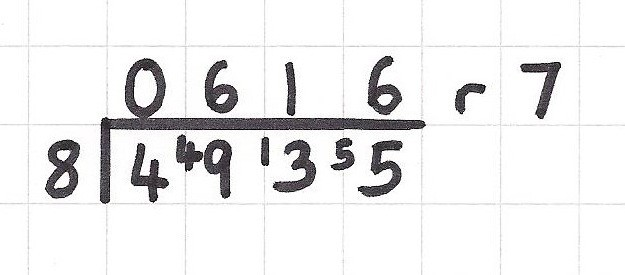 0 6 1 6 r 7
8 4 ⁴9 ¹3 ⁵5